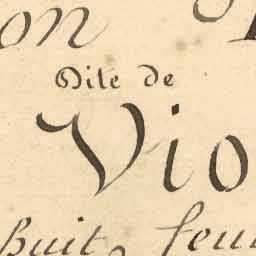 on
Dite de
Vio
huit feui